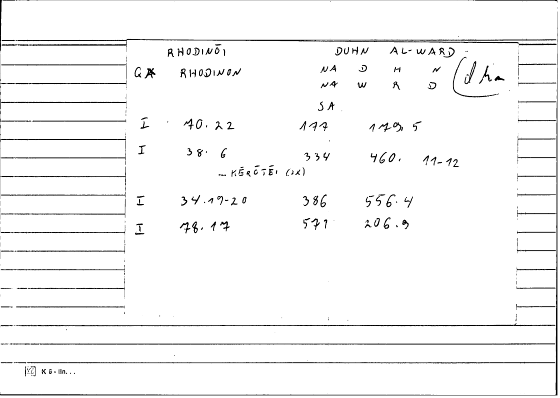 RHODINŌI DUHN AL-WARD
GA RHODINON NA D H N
NA W R D
dhn
SA
I 70.22 177 179.5
I 38.6 334 460. 11-12
– KĒRŌTĒI (DX)
I 34.19-20 386 556.4
I 78.17 571 206.9